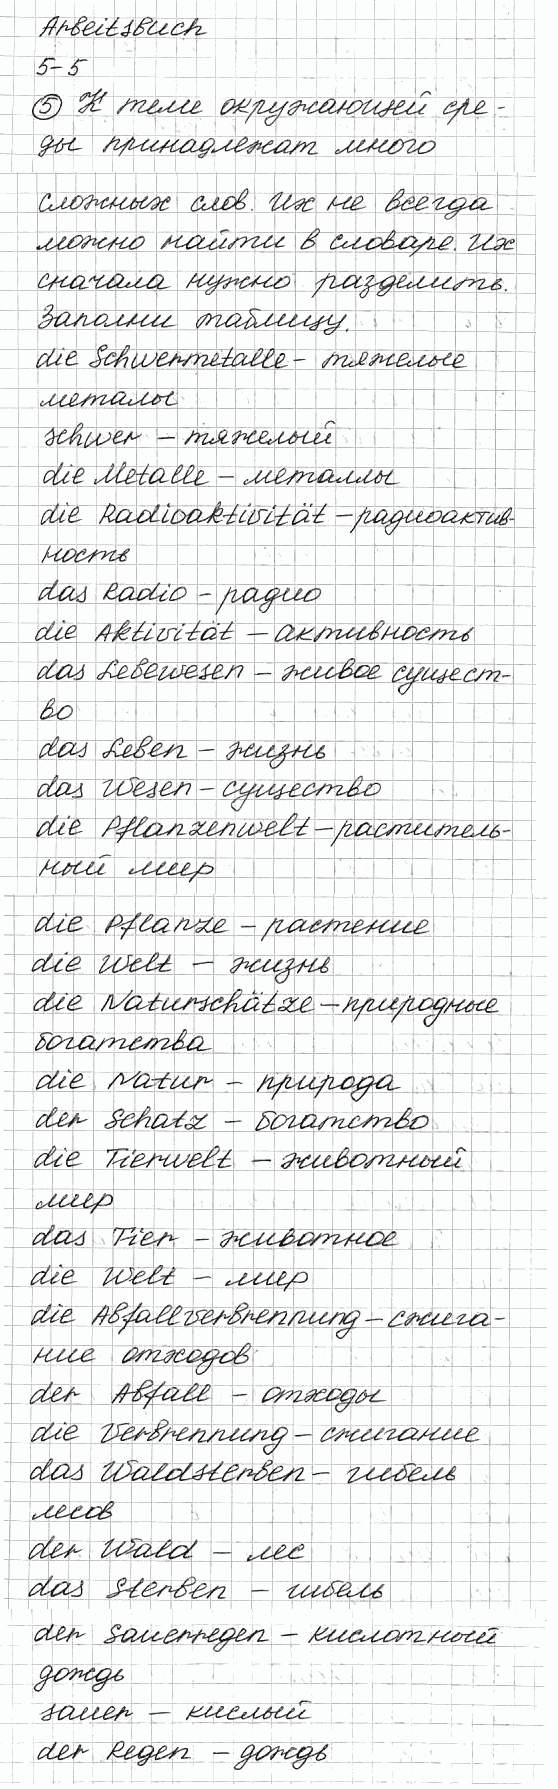 Arbeitsbuch
5-5
⑤ К теме окружающей сре-
ды принадлежат много
сложных слов. Их не всегда
можно найти в словаре. Их
сначала нужно разделить.
Заполни таблицу.
die Schwermetalle - тяжелые
металы
schwer - тяжелый
die Metalle - металлы
die Radioaktivität - радиоактив-
ность
das Radio - радио
die Aktivität - активность
das Lebewesen - живое сущест-
во
das Leben - жизнь
das Wesen - существо
die Pflanzenwelt - раститель-
ный мир
die Pflanze - растение
die Welt - жизнь
die Naturschätze - природные
богатства
die Natur - природа
der Schatz - богатство
die Tierwelt - животный
мир
das Tier - животное
die Welt - мир
die Abfallverbrennung - сжига-
ние отходов
der Abfall - отходы
die Verbrennung - сжигание
das Waldsterben - гибель
лесов
der Wald - лес
das Sterben - гибель
der Sauerregen - кислотный
дождь
sauer - кислый
der Regen - дождь